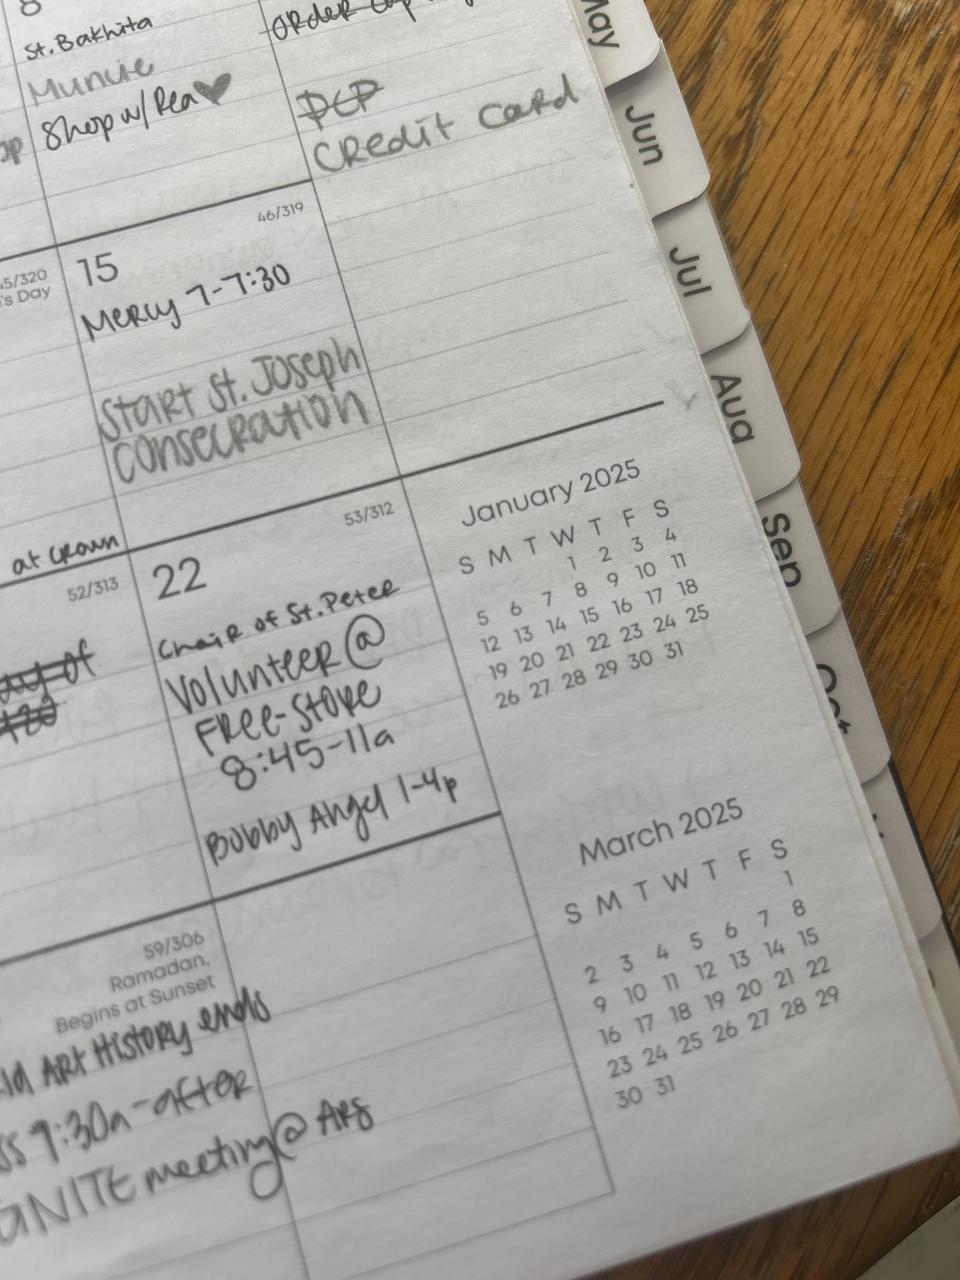 8
St. Bakhita
Muncie
Shop w/ Rea
order
PCP
Credit Card
46/319
15
Mercy 7-7:30
Start St. Joseph
Consecration
45/320
's Day
at Crown
53/312
22
Chair of St. Peter
Volunteer @
Free-Store
8:45-11a
Bobby Angel 1-4p
52/313
of
59/306
Ramadan,
Begins at Sunset
Art History ends
9:30a-after
meeting @
January 2025
S M T W T F S
1 2 3 4
5 6 7 8 9 10 11
12 13 14 15 16 17 18
19 20 21 22 23 24 25
26 27 28 29 30 31
March 2025
S M T W T F S
1
2 3 4 5 6 7 8
9 10 11 12 13 14 15
16 17 18 19 20 21 22
23 24 25 26 27 28 29
30 31
May
Jun
Jul
Aug
Sep
Oct